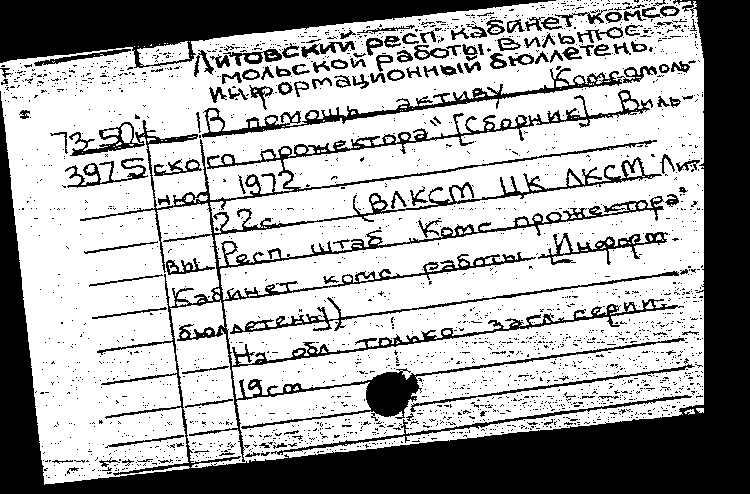 Литовский респ. кабинет комсо-
мольской работы. Вильнюс.
Информационный бюллетень.
В помощь активу „Комсомоль-
3975 ского прожектора". [Сборник] Виль-
нюс, 1972.
22 с. (ВЛКСМ ЦК ЛКСМ Лит-
вы. Респ. штаб „Комс прожектора".
Кабинет комс. работы. [Информ.
бюллетень])
На обл только загл. серии.
19 cm